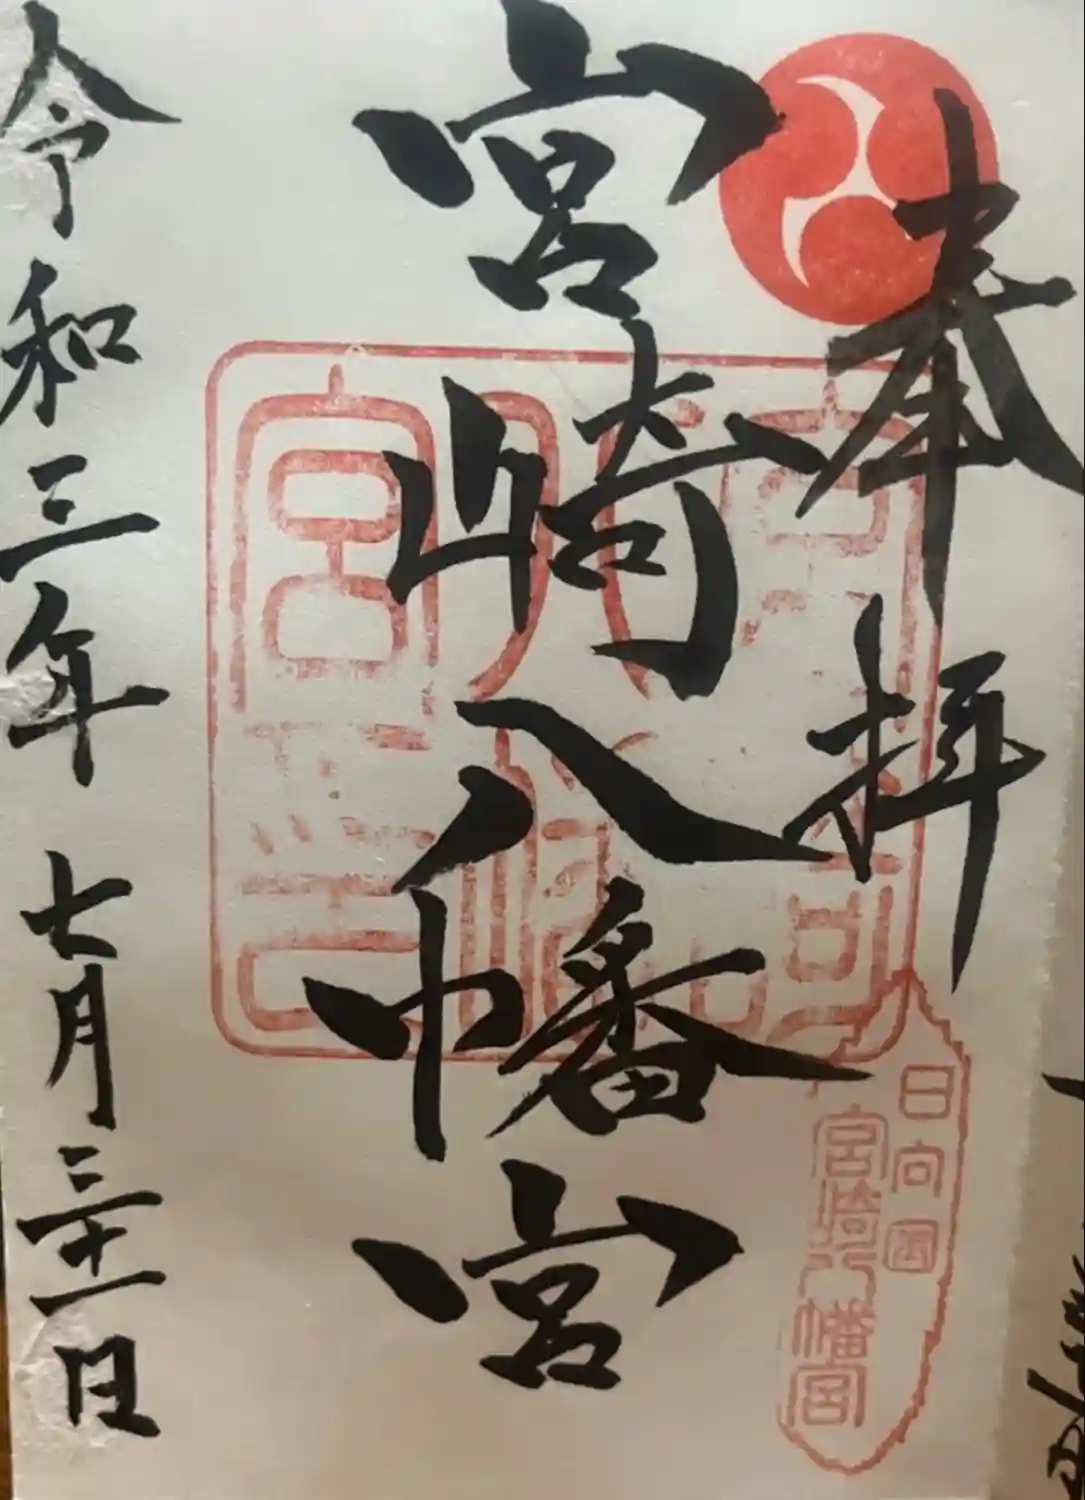 奉拝
宮崎八幡宮
令和三年七月三十一日
日向国
宮崎八幡宮